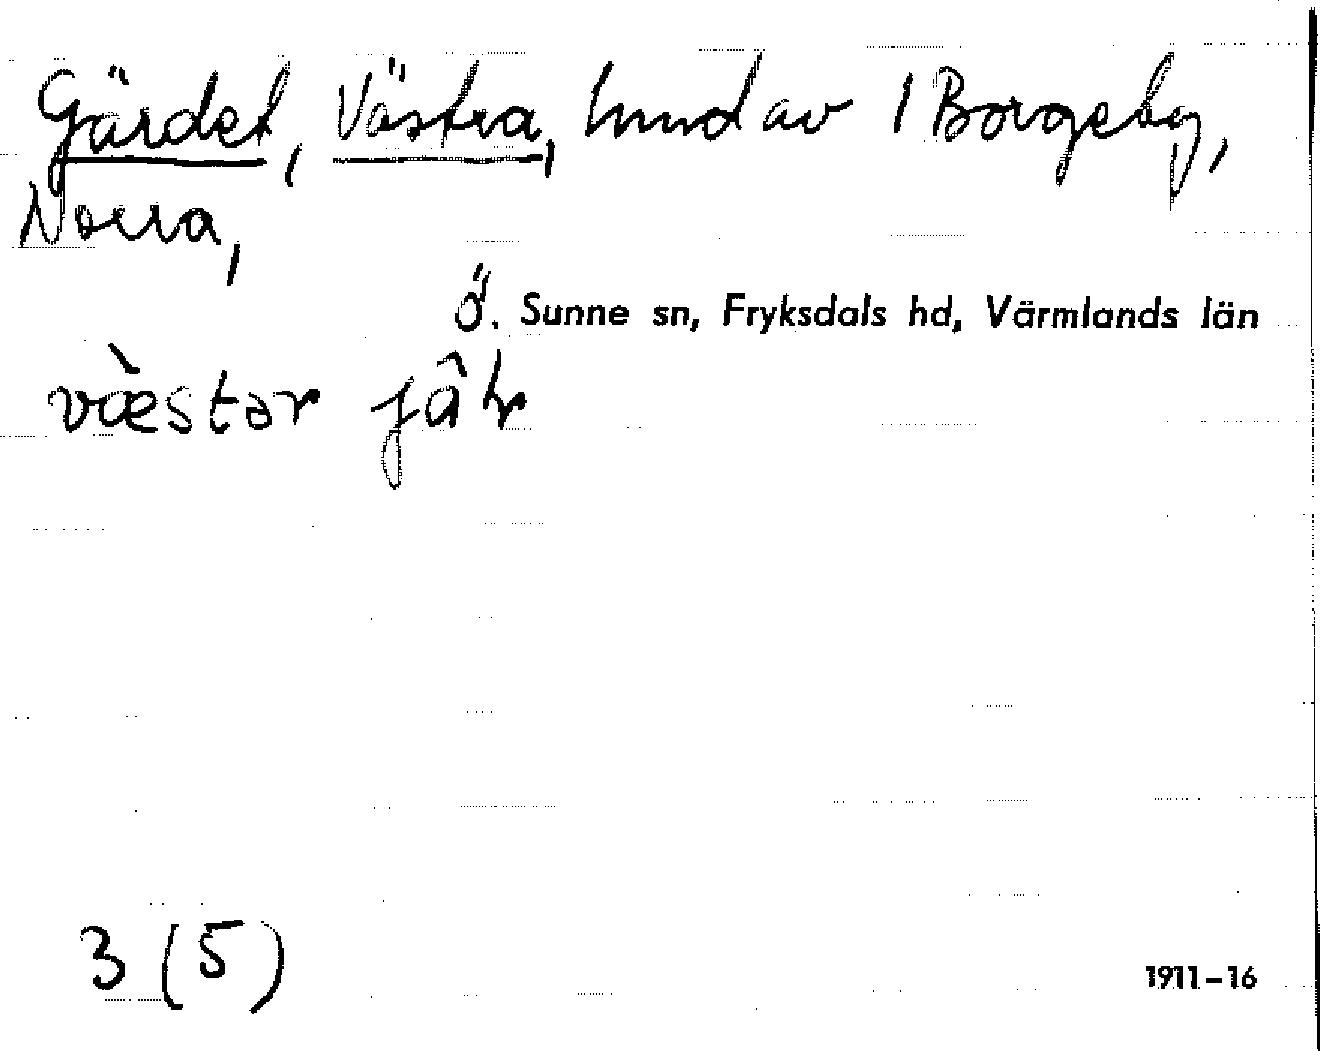 Gärdet, Västra, hmd av 1 Borgeby,
Norra,
Ö. Sunne sn, Fryksdals hd, Värmlands län
væ̀stər jâ
3 (5)
1911–16